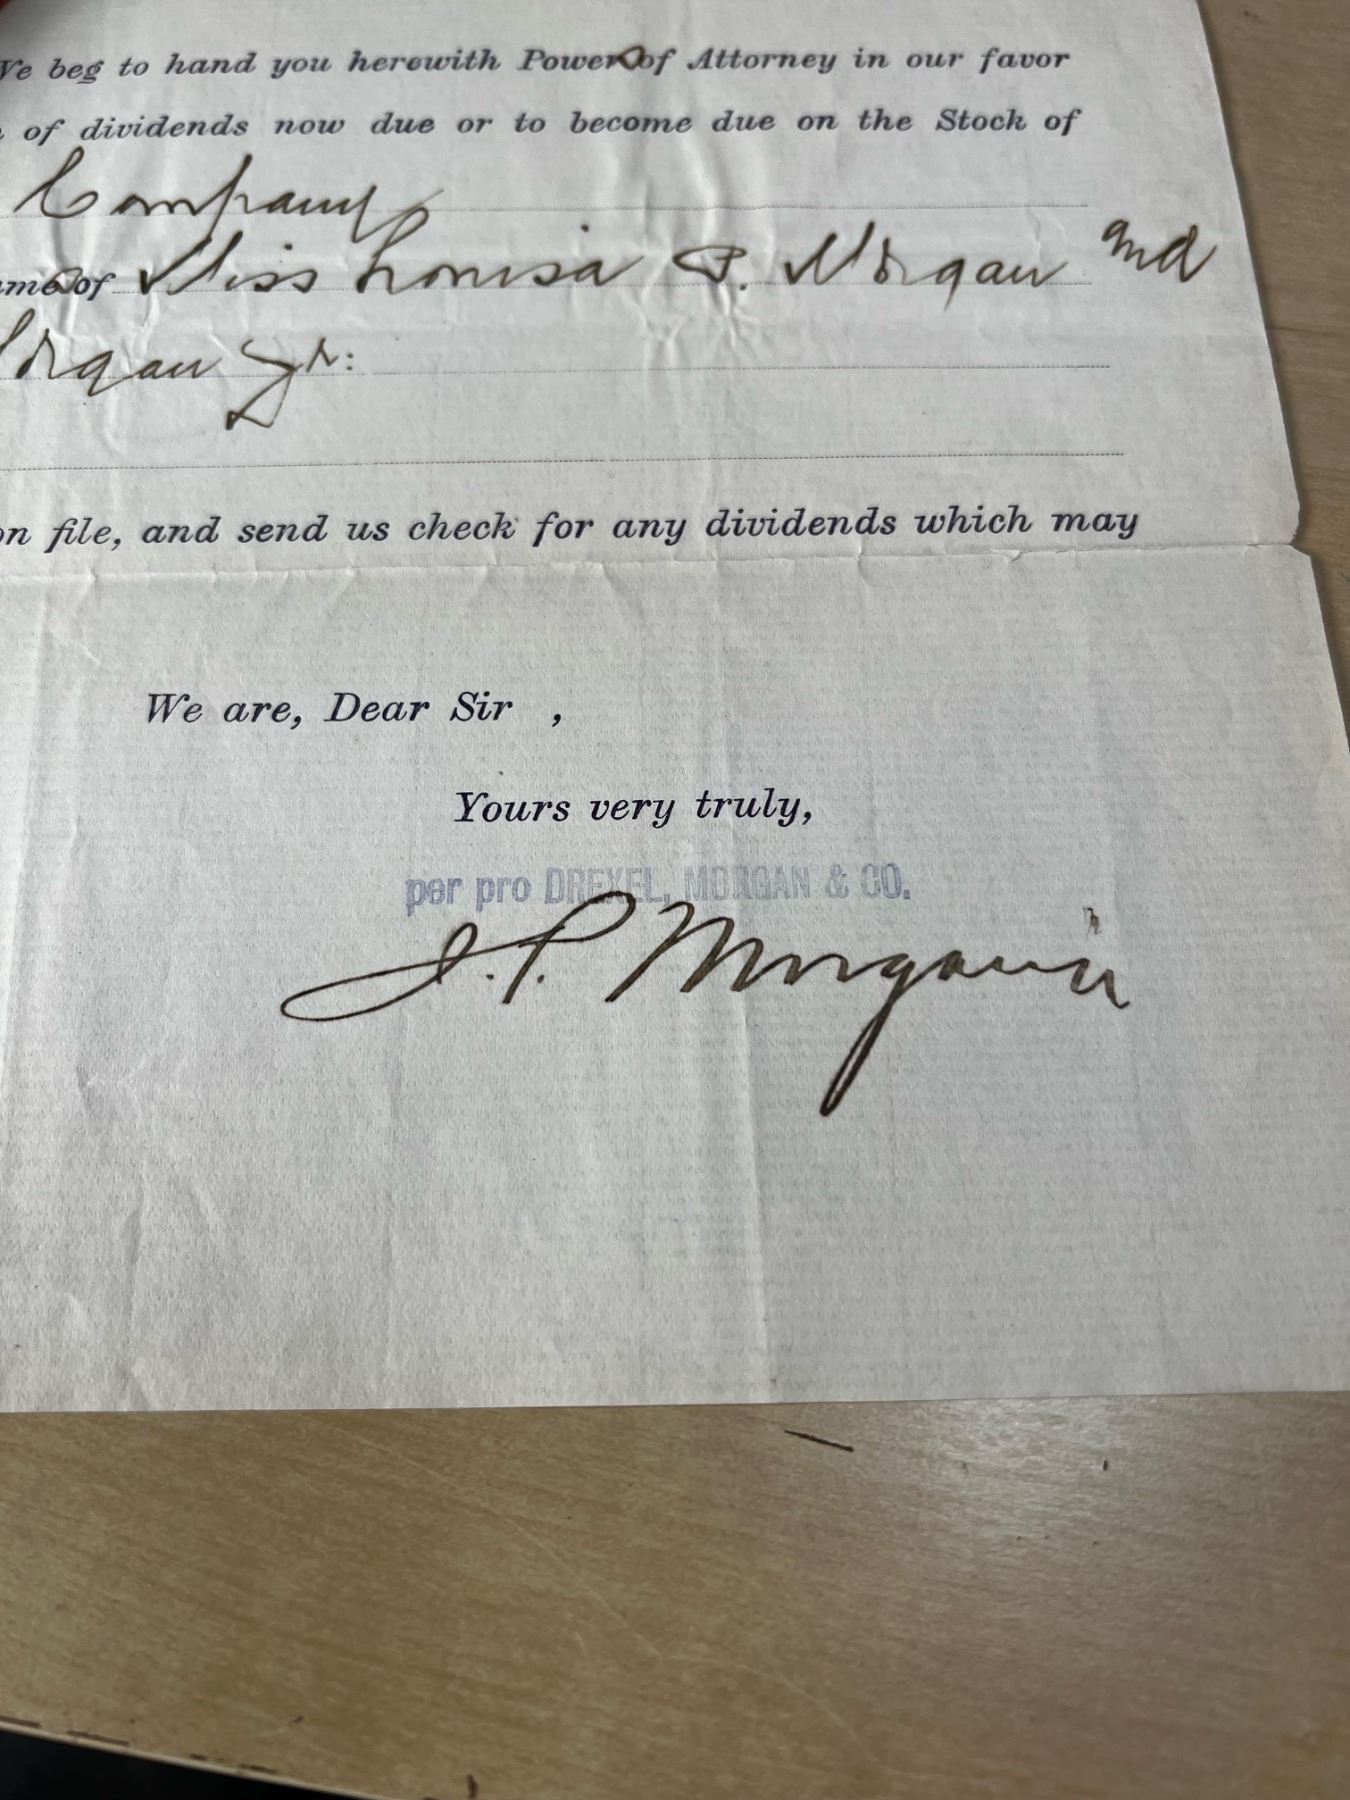 We beg to hand you herewith Power of Attorney in our favor
of dividends now due or to become due on the Stock of
Company
of Miss Louisa P. Morgan and
Morgan Jr:
on file, and send us check for any dividends which may
We are, Dear Sir ,
Yours very truly,
per pro DREXEL, MORGAN & CO.
J. P. Morgan Jr